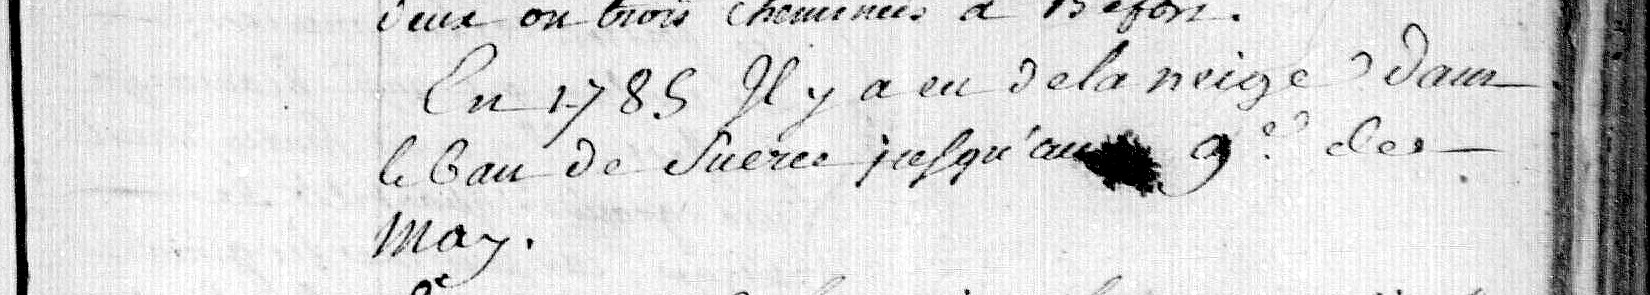 deux ou trois cheminées à Béfort.
En 1785 Il y a eu de la neige dans
le ban de Suerce jusqu'au 9.e de
May.